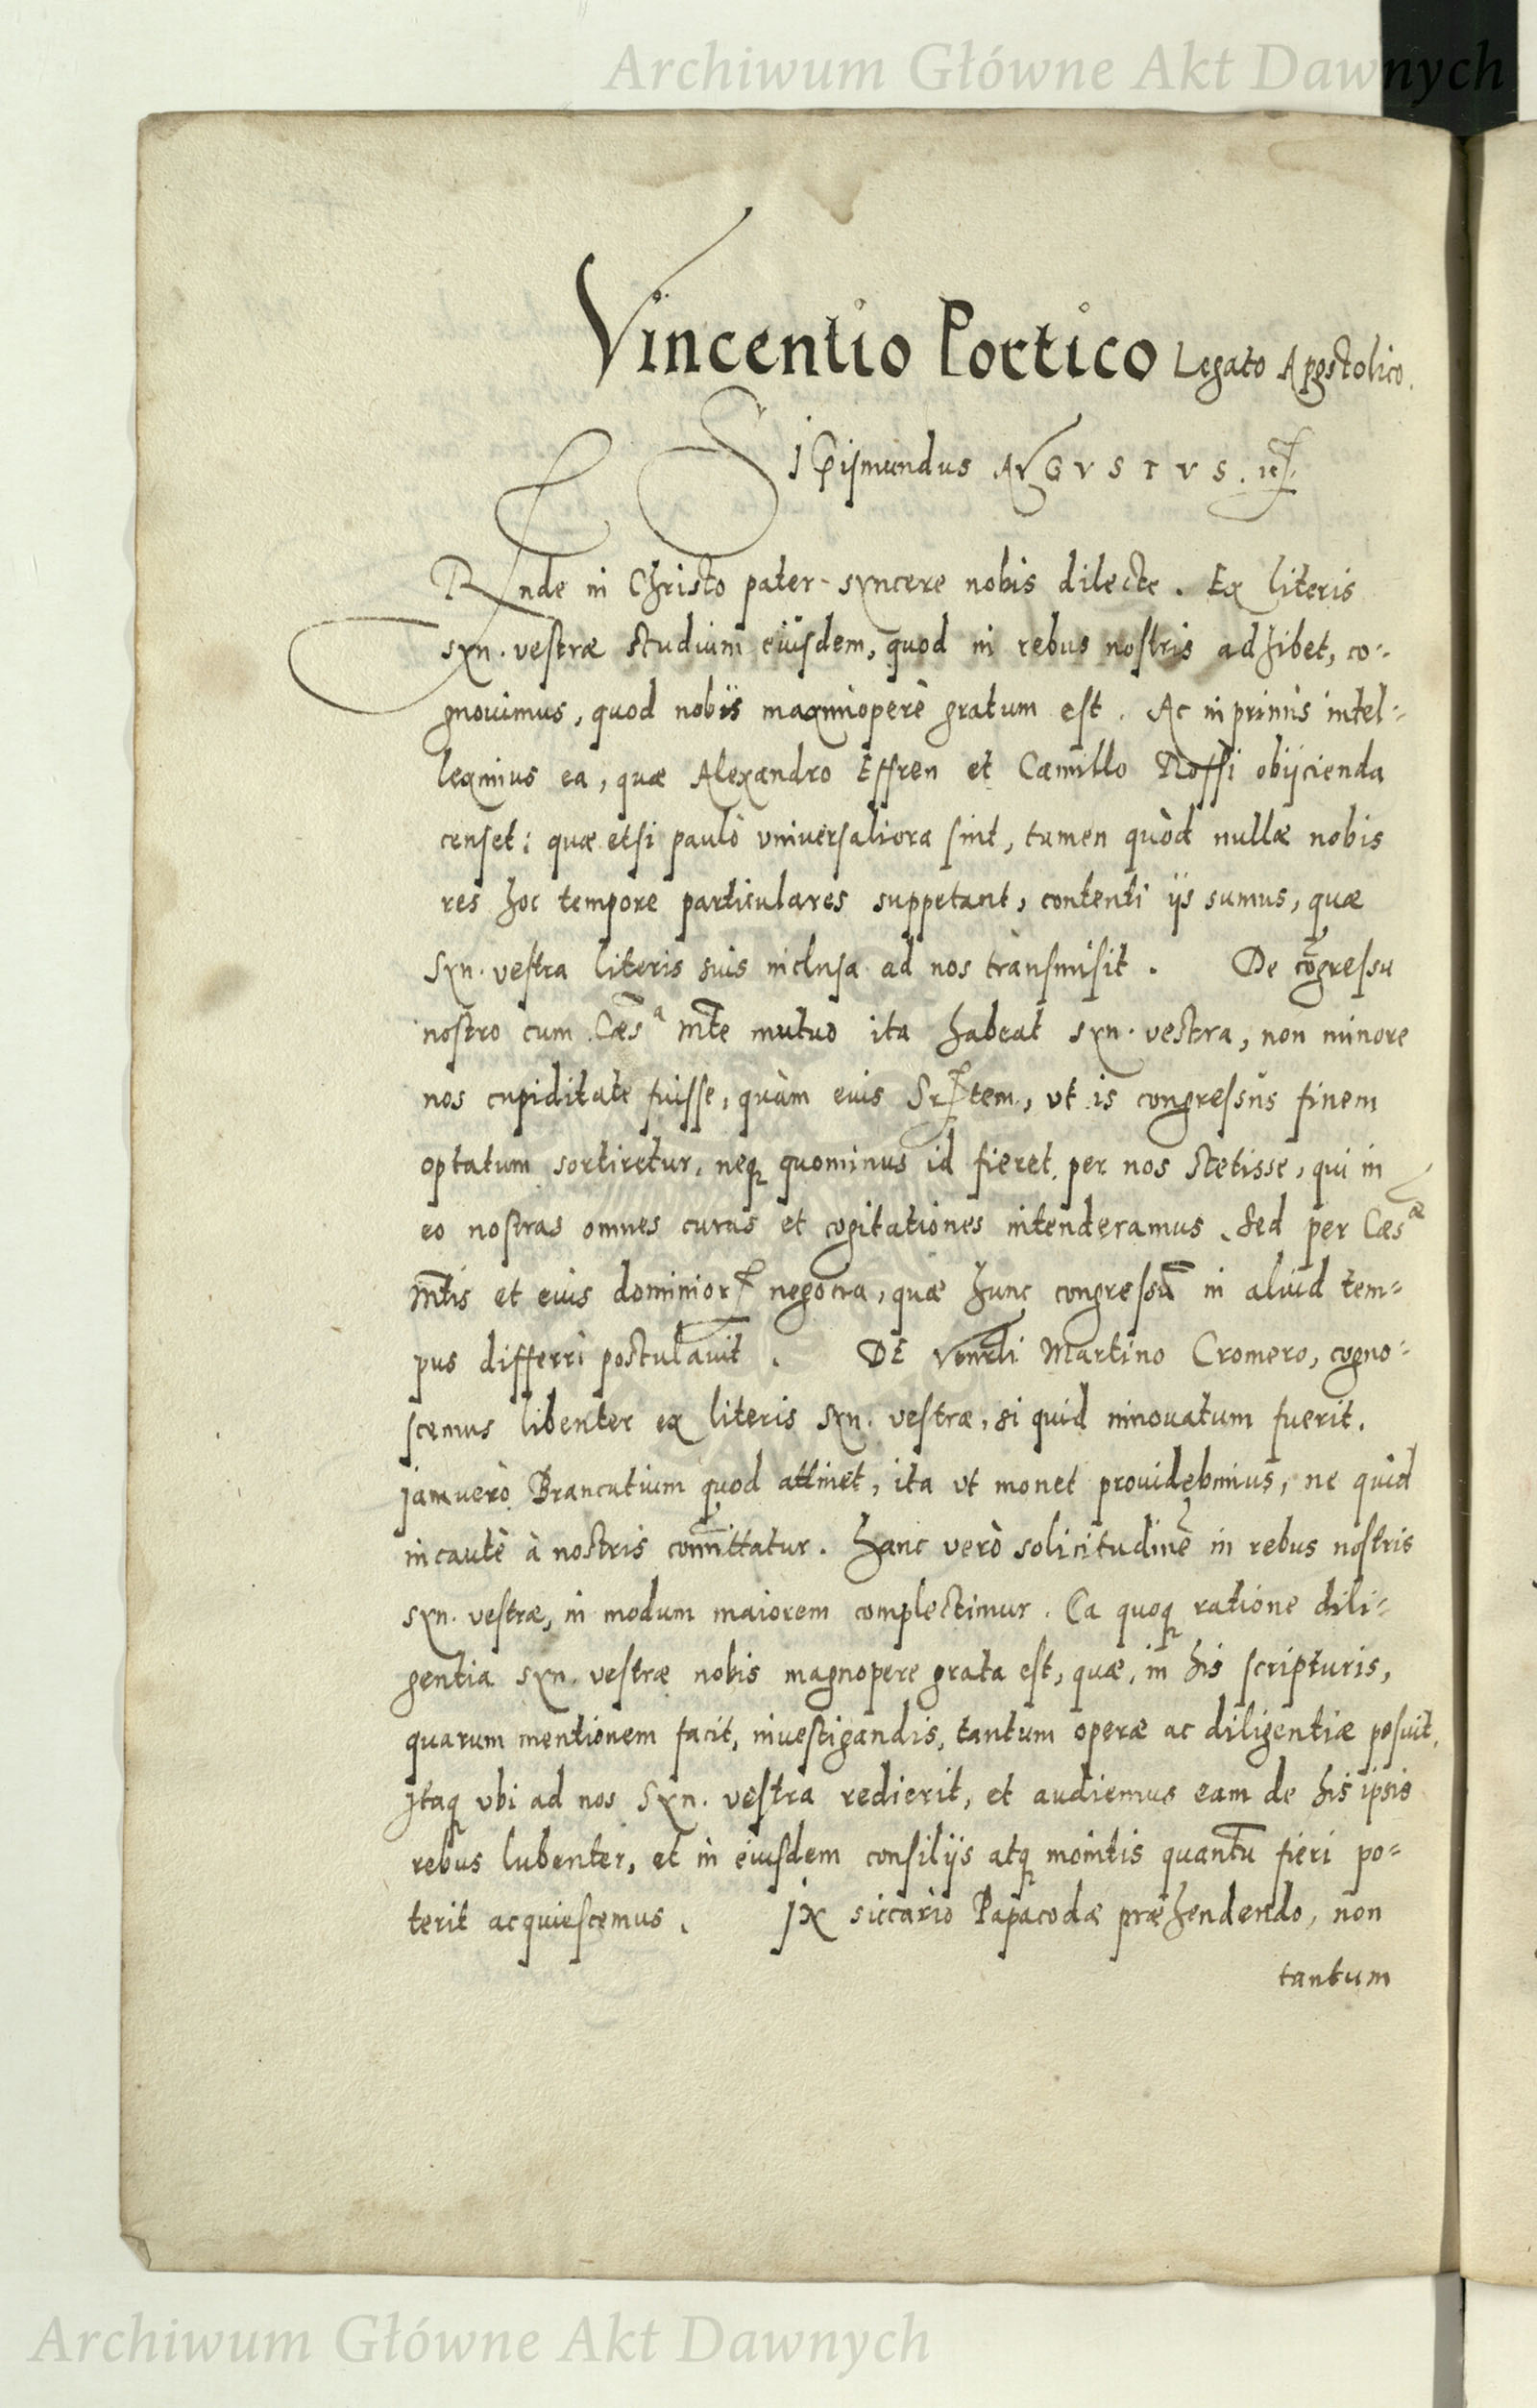 Archiwum Główne Akt Dawnych
Vincentio Portico Legato Apostolico.
SIGismundus AVGVSTVS. etc.
Rnde in Christo pater syncere nobis dilecte. Ex literis
syn. vestræ studium eiusdem, quod in rebus nostris adhibet, co=
gnouimus, quod nobis maximopere gratum est. Ac inprimis intel=
leximus ea, quæ Alexandro Effren et Camillo Rossi obijcienda
censet: quæ etsi paulò vniuersaliora sint, tamen quòd nullæ nobis
res hoc tempore particulares suppetant, contenti ijs sumus, quæ
Syn. vestra literis suis inclusa ad nos transmisit. De cōgressu
nostro cum Cæs.ª Mte mutuo ita habeat syn. vestra, non minore
nos cupiditate fuisse, quàm eius Srtem, vt is congressus finem
optatum sortiretur, neq quominus id fieret per nos stetisse, qui in
eo nostras omnes curas et cogitationes intenderamus. Sed per Cæsæ
Mtis et eius dominior negocia, quæ hunc congressū in aliud tem=
pus differri postulauit. DE Venrli Martino Cromero, cogno=
scemus libenter ex literis syn. vestræ, si quid innouatum fuerit.
jam verò Brancatium quod attinet, ita vt monet prouidebimus, ne quid
incautè à nostris com̄ittatur. Hanc verò solicitudinē in rebus nostris
syn. vestræ, in modum maiorem complectimur. Ea quoq ratione dili=
gentia syn. vestræ nobis magnopere grata est, quæ, in his scripturis,
quarum mentionem facit, inuestigandis, tantum operæ ac diligentiæ posuit.
Itaq vbi ad nos Syn. vestra redierit, et audiemus eam de his ipsis
rebus lubenter, et in eiusdem consilijs atq monitis quantū fieri po=
terit acquiescemus. IN siccario Papacodæ præhendendo, non
tantum
Archiwum Główne Akt Dawnych